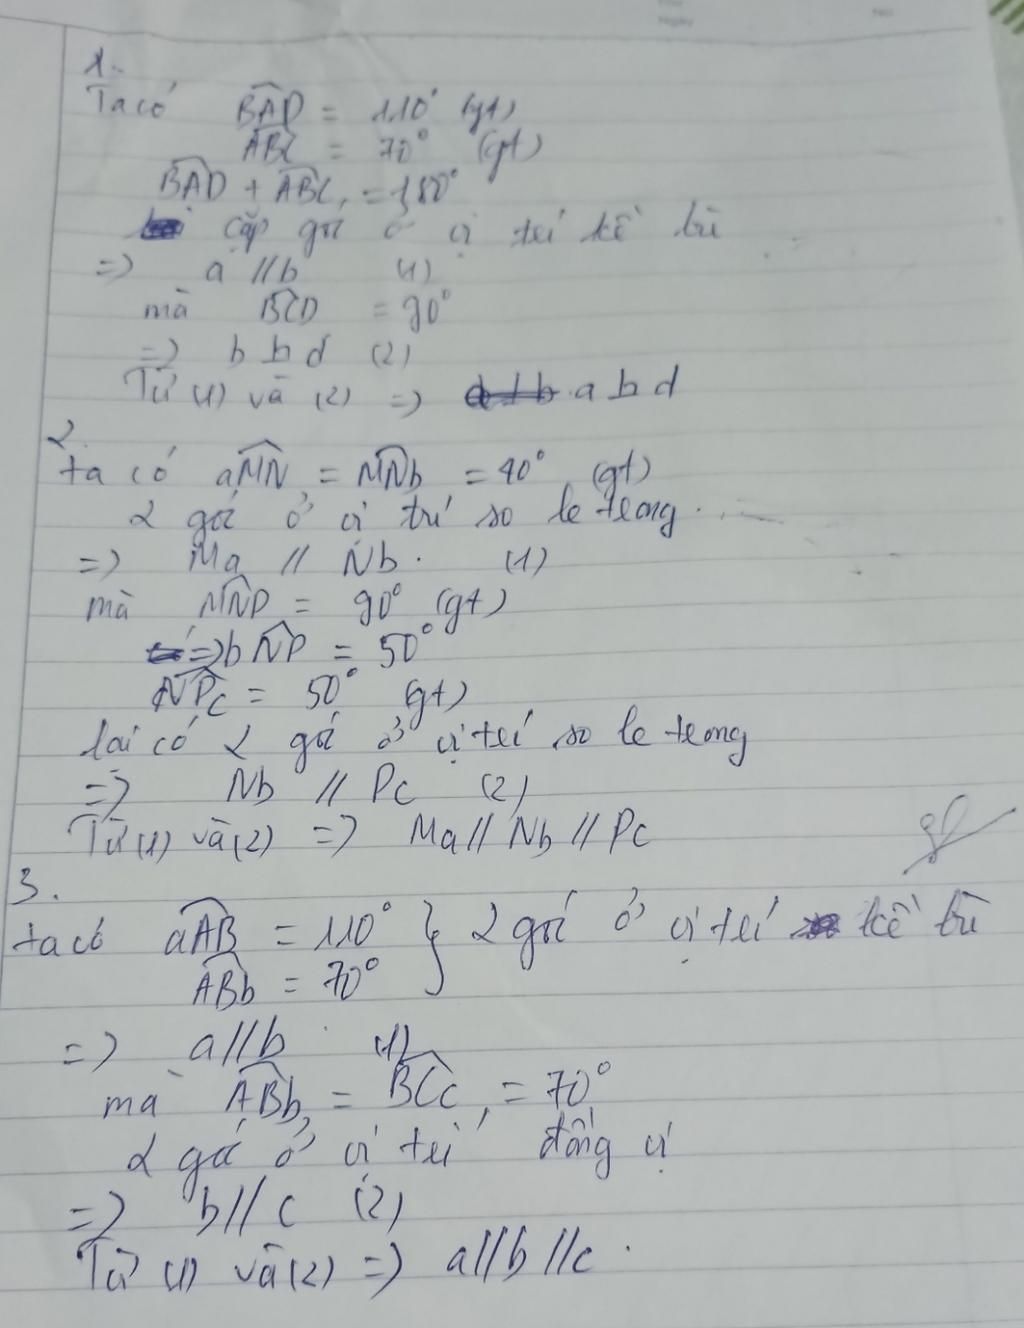 1.
Ta có BAD = 110° (gt)
ABC = 70° (gt)
BAD + ABC = 180°
cặp góc ở vị trí kề bù
=> a // b (1)
mà BCD = 90°
=> b ⊥ d (2)
Từ (1) và (2) => a ⊥ d
2.
ta có aMN = MNb = 40° (gt)
2 góc ở vị trí so le trong
=> Ma // Nb. (1)
mà MNP = 90° (gt)
=> bNP = 50°
NPc = 50° (gt)
lại có 2 góc ở vị trí so le trong
=> Nb // Pc (2)
Từ (1) và (2) => Ma // Nb // Pc
3.
ta có aAB = 110° } 2 góc ở vị trí kề bù
ABb = 70°
=> a // b (1)
mà ABb = BCc = 70°
2 góc ở vị trí đồng vị
=> b // c (2)
Từ (1) và (2) => a // b // c.